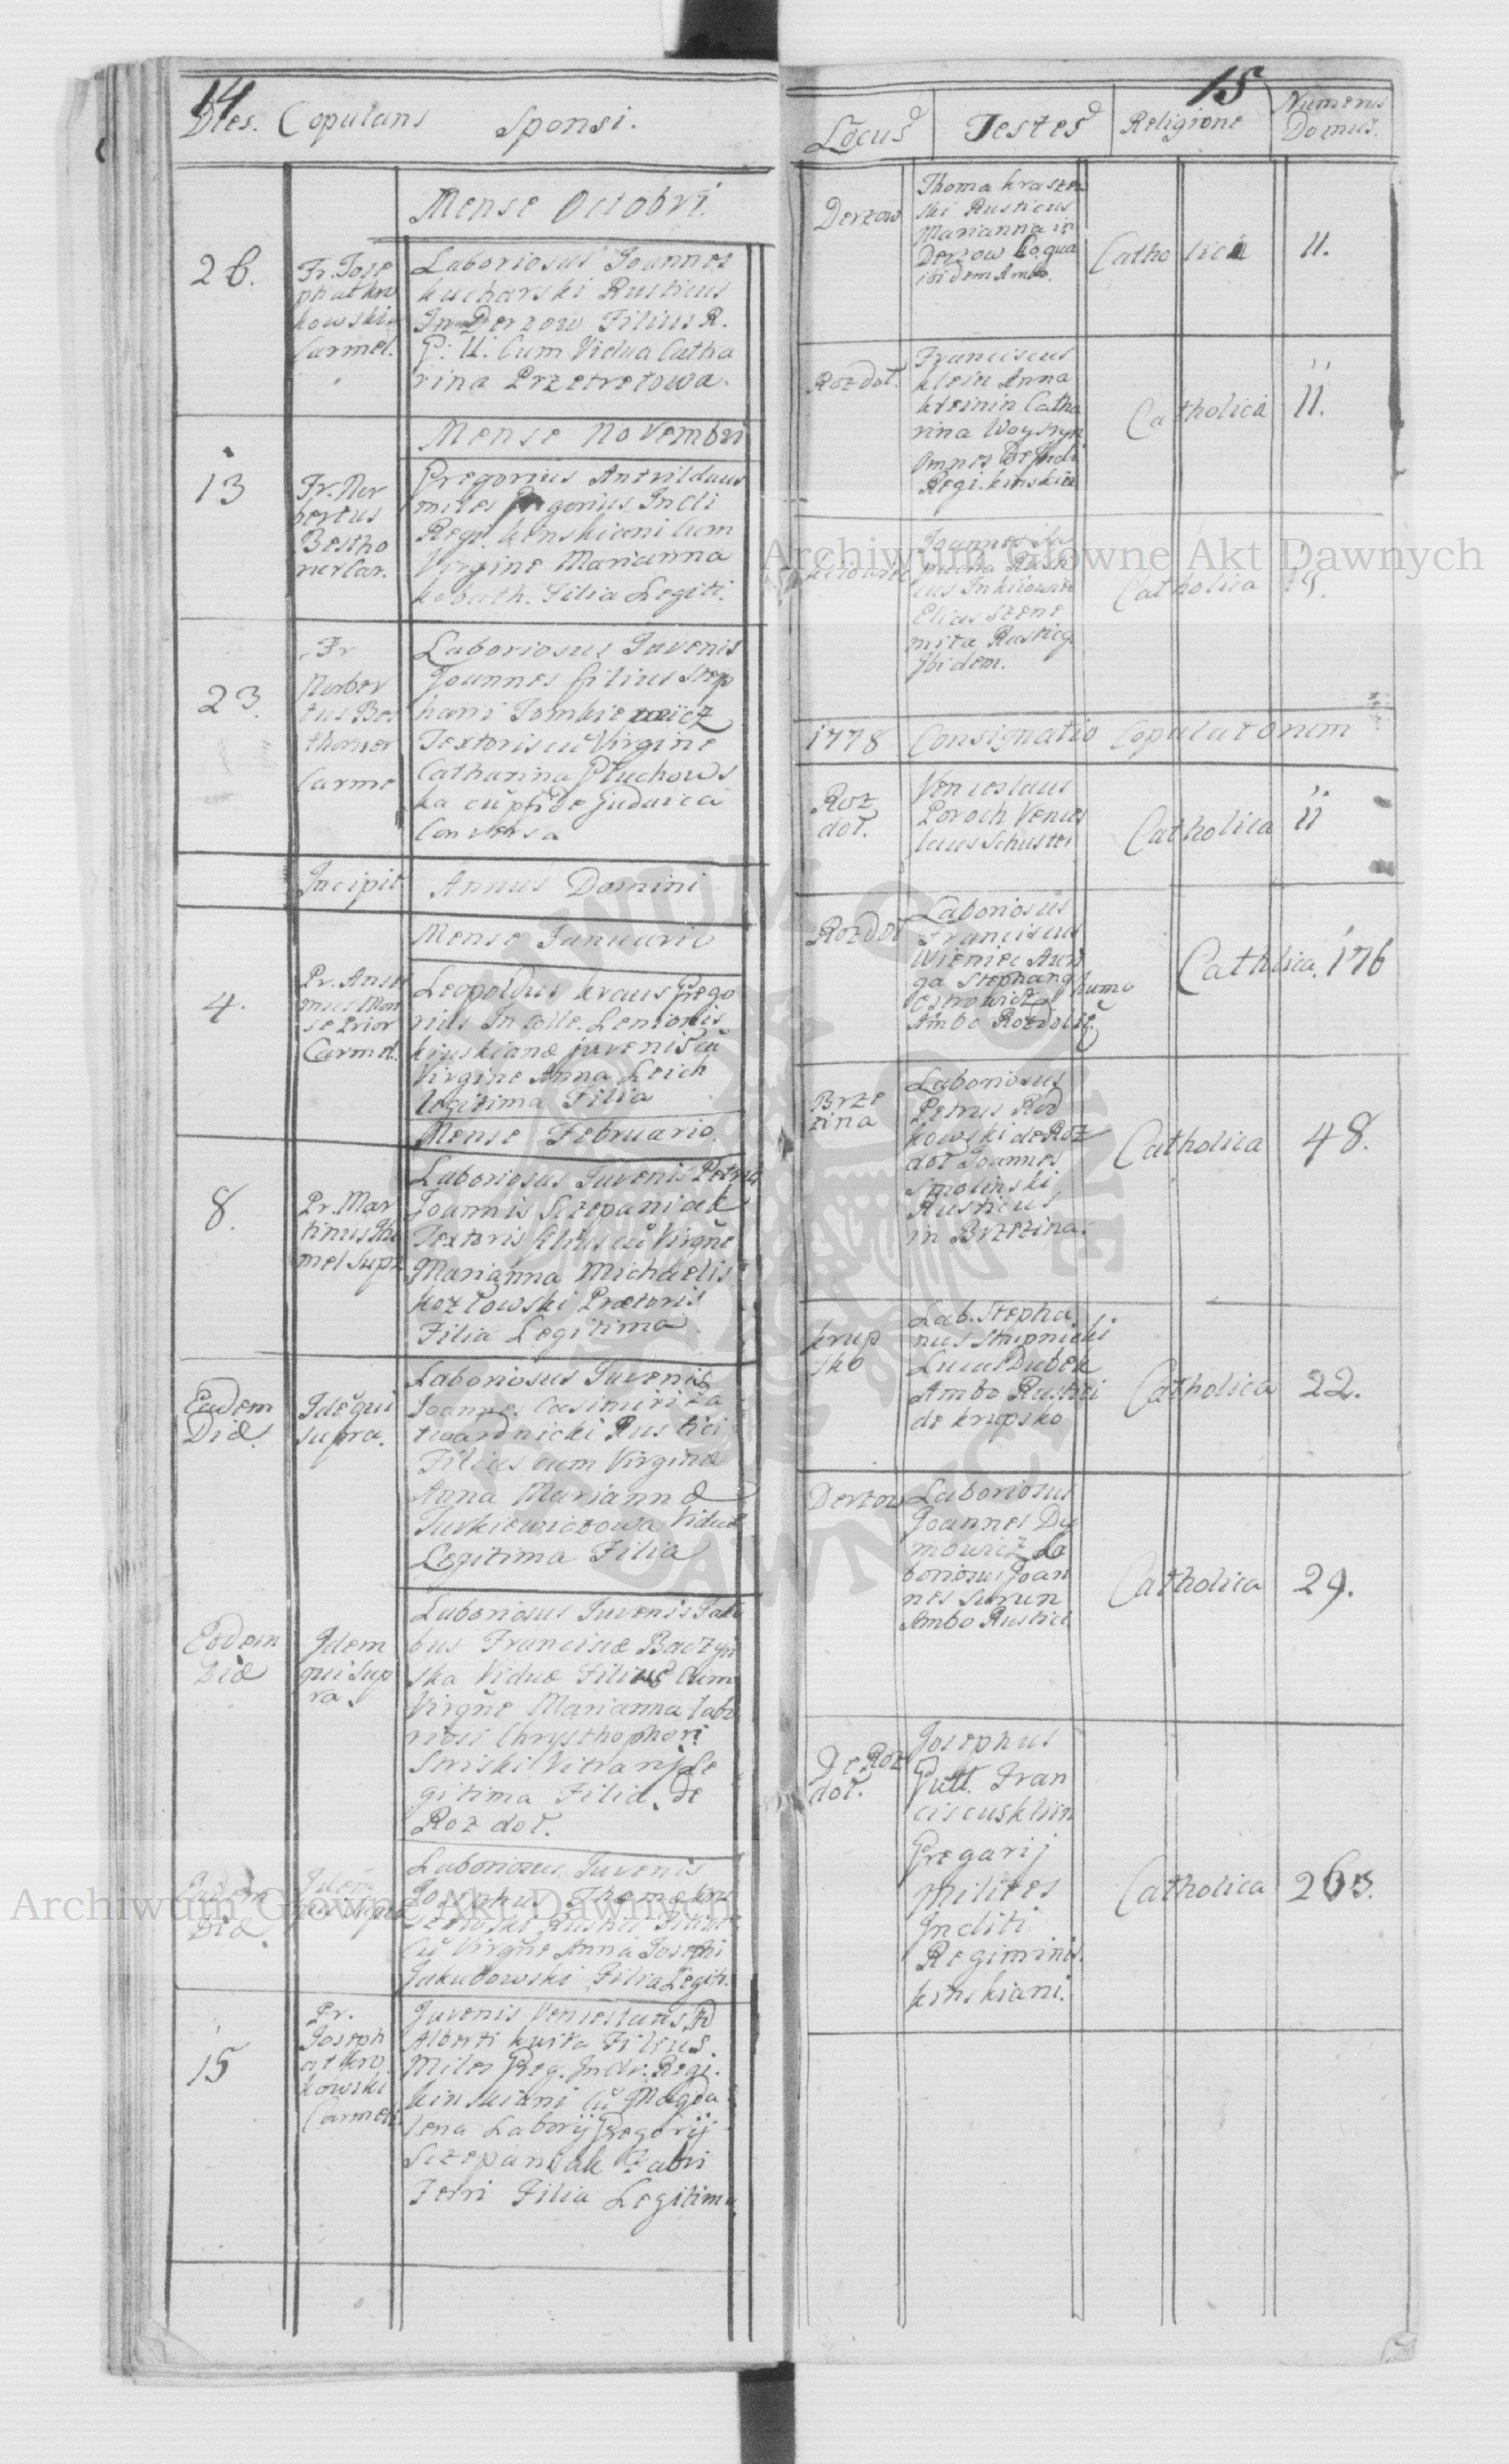 14
Dies. Copulans Sponsi.
Mense Octobri.
26.
Fr. Josa
phat kru
kowski
Carmel.
Laboriosus Joannes
kucharski Rusticus
In Derzow Filius R.
G: U: Cum Vidua Catha
rina Przetretowa.
Mense Novembri
13
Fr. Nor
bertus
Bestho
ner Car.
Gregorius
miles Gregorius Incli
Regi. kenskiani cum
Virgine Marianna
Filia Legiti.
23.
Fr
Norber
tus Be
thoner
Carme
Laboriosus Juvenis
Joannes filius Step
hani Tomkiewicz
Textoris cũ Virgine
Catharina Pluchows
ka cũ pfide judaica
Conversa
Incipit Annus Domini
Mense Januario
4.
Pr. Ansel
mus
se Prior
Carmel.
Leopoldus kraus Grego
rius In Colle. Lenionis
kinskianæ juvenis cũ
Virgine Anna Leich
legitima Filia
Mense Februario.
8.
Pr. Mar
tinus
mel Supr
Laboriosus Juvenis Petrus
Joannis Sczepaniak
Textoris filius cũ Virgñe
Marianna Michaelis
kozłowski Prætoris
Filia Legitima
Eadem
Die.
Idẽ qui
supra.
Laboriosus Juvenis
Joannes Casimiri za
twardnicki Rustici
Filius cum Virgine
Anna Mariannæ
Turkiewiczowa Viduæ
Legitima Filia
Eodem
Die
Idem
qui Sup
ra.
Laboriosus Juvenis Jako
bus Francisæ Baczyn
ska Viduæ Filius Cum
Virgñe Marianna Labo
riosi Chrysthophori
Striski Vitrarij Le
gitima Filia. de
Roz doł.
Eadem
Die.
Idem
qui supra
Laboriosus Juvenis
Josephus Thomæ kra
szewski Rustici Filius
Cũ Virgñe Anna Josephi
Jakubowski Filia Legiti.
15
Pr.
Joseph
at kru
kowski
Carmeli.
Juvenis Venceslaus
Alberti kuita Filius.
Miles Greg. Incli. Regi.
kinskiani Cũ Magda
lena Laborij Gregorij
Sczepaniak Fabri
Ferri Filia Legitima
15
Locus Testes Religione Numerus
Domus.
Derzow
Thoma kraszew
ski Rusticus
Marianna in
Derzow Coqua
ibidem Ambo.
Catholica 11.
Rozdoł.
Franciscus
klein Anna
kleinin Catha
rina Woystyn
Omnes de Incli
Regi. kinskia
Catholica 11.
kiiowiec
Joannes
Rusti
cus In kiiowiec
Elias Szeme
mita Rusticq.
Ibidem.
Catholica
1778 Consignatio Copulatorum
Roz
doł.
Venceslaus
Poroch Vences
laus Schuster
Catholica 11
Rozdoł
Laboriosus
Franciscus
Wieniec Auri
ga Stephanq
Ostrowicz
Ambo Rozdol
Catholica. 176
Brze
zina
Laboriosus
Petrus Rod
kowski de Roz
doł Joannes
Smolinski
Rusticus
in Brzezina.
Catholica 48.
krup
sko
Lab. Stepha
nus Stupnicki
Lucas Dubek
Ambo Rustici
de krupsko
Catholica 22.
Derzow
Laboriosus
Joannes Dy
mowicz La
boriosus Joan
nes Surun
Ambo Rustici.
Catholica 29.
De Roz
doł.
Josephus
Putt. Fran
ciscus kliin
Gregarij
Milites
Incliti
Regiminis.
kinskiani.
Catholica 265.
Archiwum Główne Akt Dawnych
Archiwum Główne Akt Dawnych